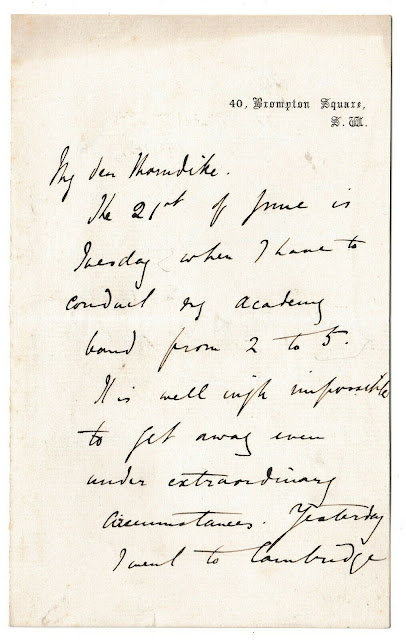 40, Brompton Square,
S. W.
My dear Thorndike.
The 21st of June is
Tuesday when I have to
conduct my academy
band from 2 to 5.
It is well nigh impossible
to get away even
under extraordinary
circumstances. Yesterday
I went to Cambridge